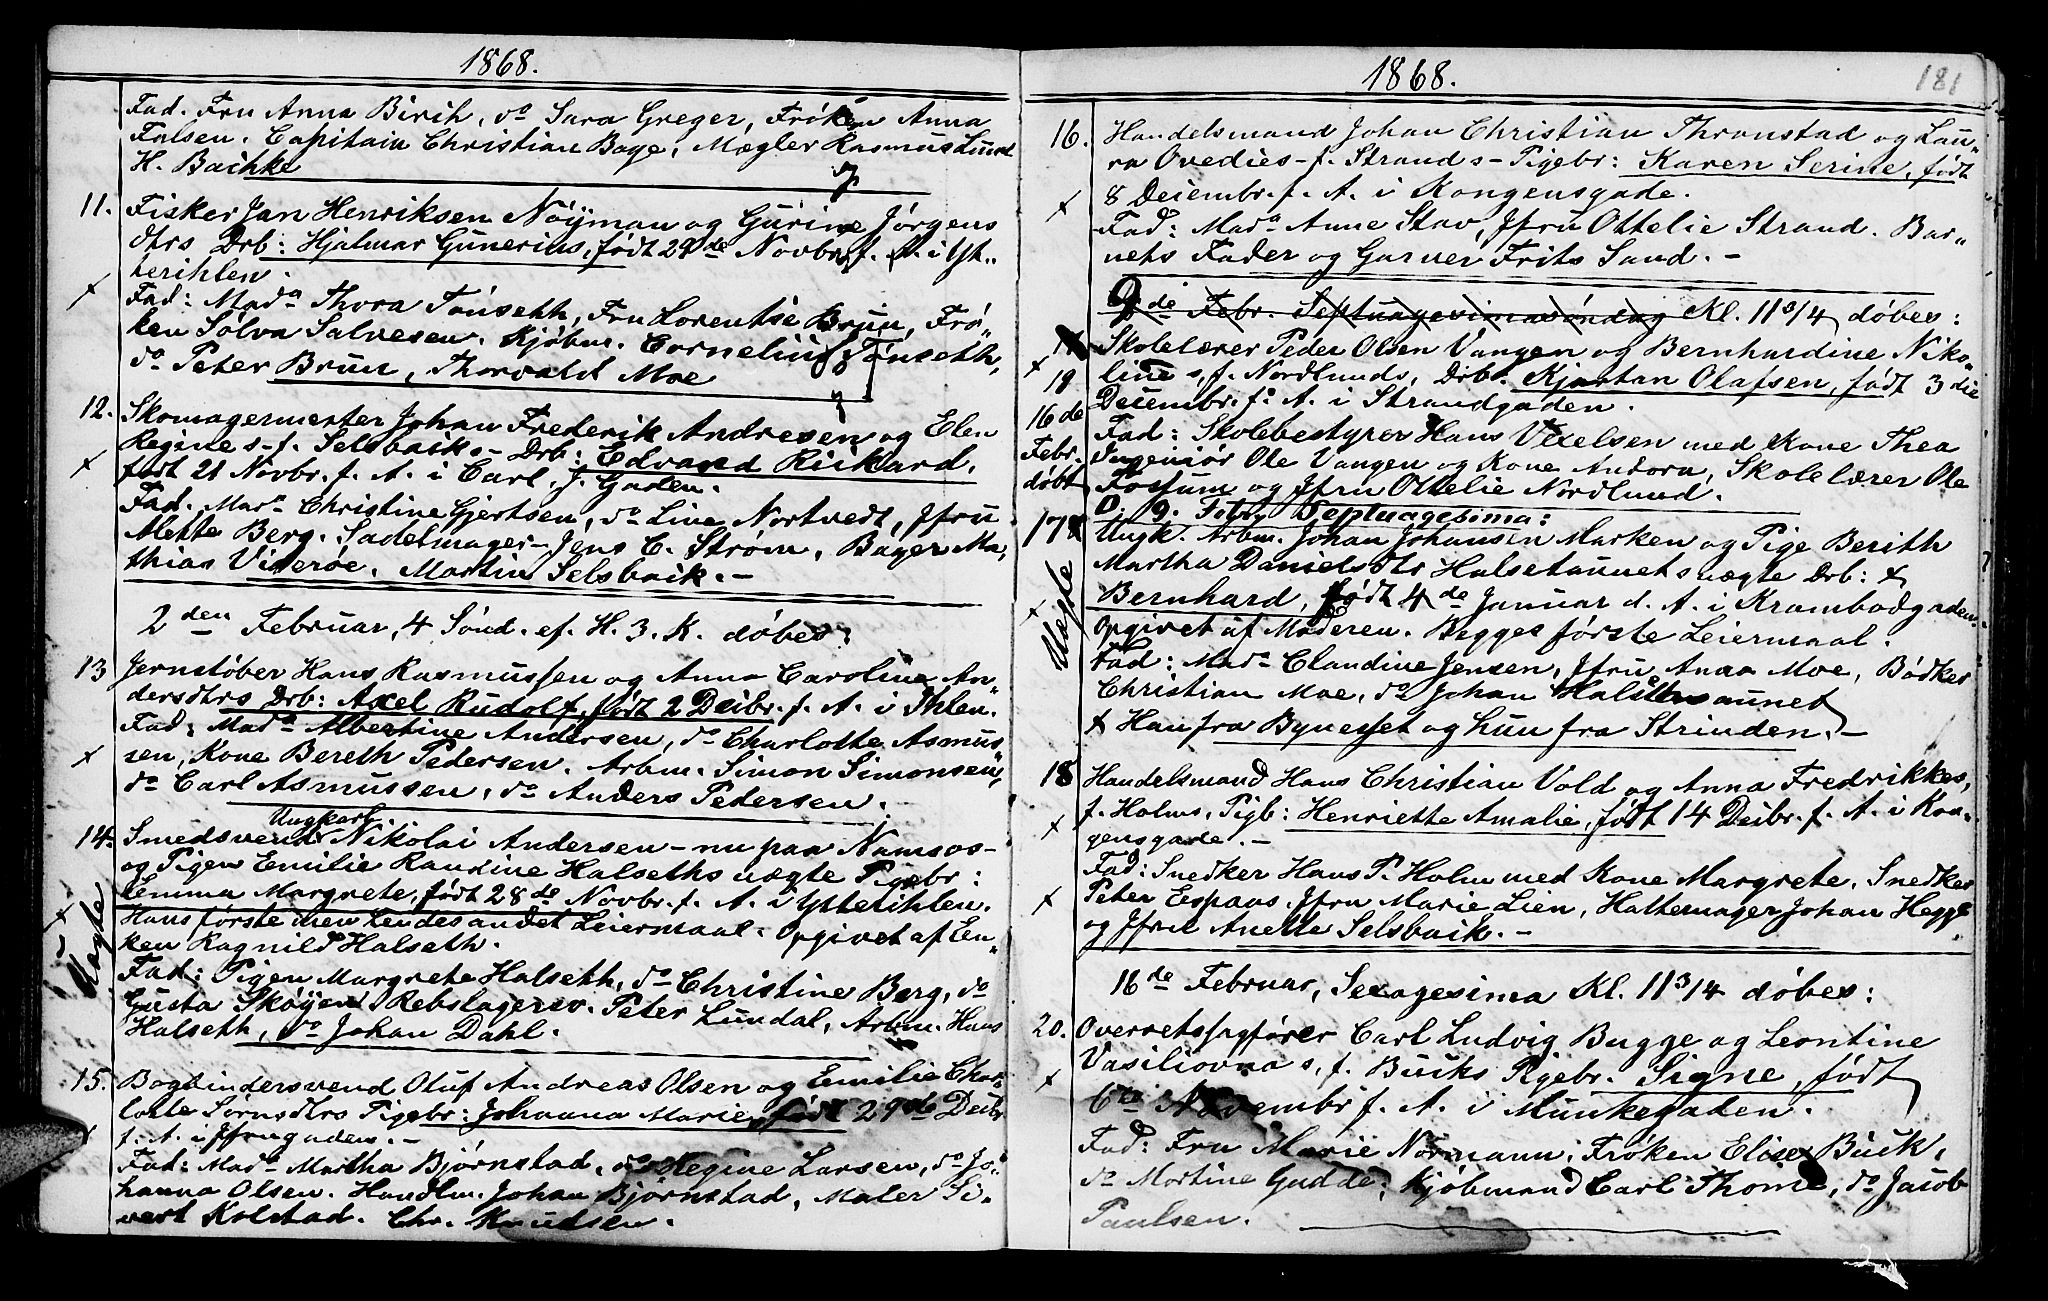 1868.
Fad. Fru Anna Birch, do Sara Greger, Frøken Anna
Falsen. Capitain Christian Baye, Mægler Rasmus Lund
H. Bachke
11. Fisker Jan Henriksen Nöÿman og Gurine Jørgens
dtrs Drb: Hjalmar Gunerius, født 29de Novbr. f. A. i Yt.
terihlen.
Fad: Mada Thora Tönseth, Fru Lorentse Brun, Frø„
ken Sölva Salvesen. Kjöbm. Cornelius Tönseth,
do Peter Brun, Thorvald Moe
12. Skomagermester Johan Frederik Andresen og Elen
Regine s-f. Selsbaik - Drb: Edvard Rickard,
født 21 Novbr. f. A. i Carl. J. Gaden.
Fad. Mada Christine Gjertsen, do Line Nortvedt, Jfru
Mette Berg. Sadelmager Jens C. Strøm, Bager Ma„
thias Viderøe. Martin Selsbaik. -
2den Februar, 4 Sönd. ef. H. 3. K. døbes:
13 Jernstøber Hans Rasmussen og Anna Caroline An„
dersdtrs Drb: Axel Rudolf, født 2 Decbr. f. A. i Ihlen.
Fad: Mada Albertine Andersen, do Charlotte Asmus„
sen, Kone Bereth Pedersen. Arbm. Simon Simonsen,
do Carl Asmussen, do Anders Pedersen.
Ungkarl
14. Smedsvend Nikolai Andersen - nu paa Namsos -
og Pigen Emilie Randine Halseths uægte Pigebr:
Emma Margrete, født 28de Novbr. f. A. i Ytterihlen.
Uægte
Hans første men hendes andet Leiermaal. Opgivet af En„
ken Ragnild Halseth.
Fad: Pigen Margrete Halseth, do Christine Berg, do
Gusta Skøyen. Rebslagersv. Peter Lundal, Arbm. Hans
Halseth, do Johan Dahl.
15. Bogbindersvend Oluf Andreas Olsen og Emilie Char„
lotte Sørnsdtrs Pigebr: Johanna Marie, født 29de Decbr
f. A. i Jfrugaden. -
Fad: Mada Martha Bjørnstad, do Regine Larsen, do Jo„
hanna Olsen. Handlm. Johan Bjørnstad, Maler Si„
vert Kolstad. Chr. Knudsen.
1868.
181
16. Handelsmand Johan Christian Thronstad og Lau„
ra Ovedies - f. Strands - Pigebr: Karen Serine, født
8 Decembr. f. A. i Kongensgade.
Fad: Mada Anne Stav, Jfru Ottelie Strand. Bar„
nets Fader og Garver Frits Sand. -
9de Febr. Septuagesimasöndag Kl. 11 3/4 døbes:
Skolelærer Peder Olsen Vangen og Bernhardine Niko„
19 line s, f. Nordlunds, Drb. Kjartan Olafsen, født 3die
16de Decembr. f. A. i Strandgaden.
Febr. Fad: Skolebestyrer Hans Vexelsen med Kone Thea
døbt, Ingeniör Ole Vangen og Kone Andora, Skolelærer Ole
Fossum og Jfru Ottelie Nordlund.
D. 9. Febr. Septuagesima:
17 Ungk. Arbm. Johan Johansen Marken og Pige Berith
Martha Daniels dtr Halsetaunets uægte Drb: +
Uægte
Bernhard, født 4de Januar d. A. i Krambodgaden.
Opgivet af Moderen. Begges første Leiermaal.
Fad: Mada Claudine Jensen, Jfru Anna Moe, Bødker
Christian Moe, do Johan Halsetaunet
+ Han fra Bynesset og hun fra Strinden. -
18 Handelsmand Hans Christian Vold og Anna Fredrikkes,
f. Holms, Pigb: Henriette Amalie, født 14 Decbr. f. A. i Kon„
gensgade. -
Fad: Snedker Hans P. Holm med Kone Margrete. Snedker
Peter Espaas, Jfru Marie Lien, Hattemager Johan Hegge
og Jfru Anette Selsbaik. -
16de Februar, Sexagesima Kl. 11 3/4 døbes:
20. Overretssagfører Carl Ludvig Bugge og Leontine
Vasiliovna s, f. Bucks Pigebr. Signe, født
6te Novembr f. A. i Munkegaden.
Fad: Fru Marie Normann, Frøken Elise Buck,
do Martine Gudde; Kjöbmand Carl Thome, do Jacob
Paulsen.